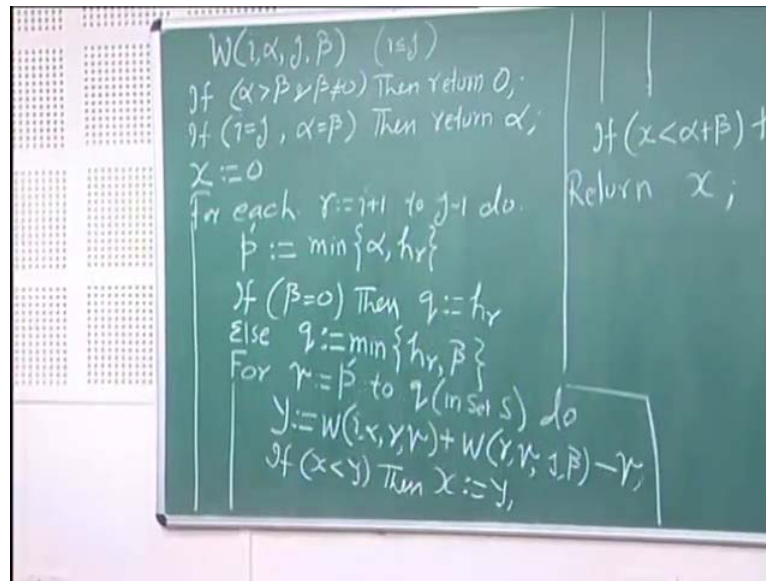 W(i,α,j,β) (i≤j)
If (α>β & β≠0) Then return 0;
If (i=j, α=β) Then return α;
x:=0
For each r:=i+1 to j-1 do.
p := min{α, hr}
If (β=0) Then q:=hr
Else q:=min{hr, β}
For γ=p to q (in Set S) do
y:=W(i,α,r,γ)+W(r,γ,j,β)-γ;
If (x<y) Then x:=y;
If (x<α+β) t
Return x;